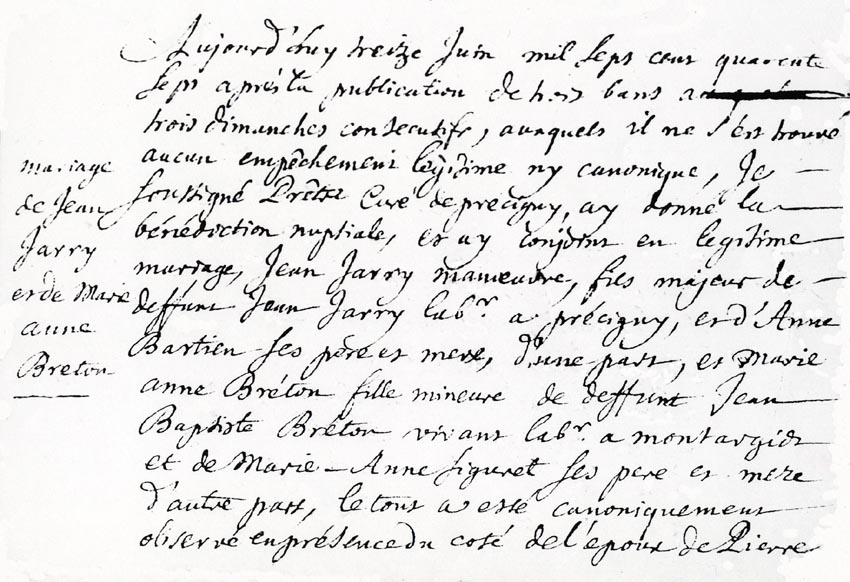 mariage
de Jean
Jarry
et de Marie
anne
Breton
Aujourd'huy treize Juin mil sept cent quarente
sept après la publication de trois bans
trois dimanches consecutifs, auxquels il ne s'est trouvé
aucun empêchement legitime ny canonique, Je
soussigné Prêtre Curé de precigny, ay donné la
bénédiction nuptiale, et ay conjoint en legitime
mariage, Jean Jarry manœuvre, fils majeur de
deffunt Jean Jarry labr. a précigny, et d'Anne
Bartien ses père et mere, d'une part, et Marie
anne Bréton fille mineure de deffunt Jean
Baptiste Bréton vivant labr. a montargidt
et de Marie-Anne figuret ses pere et mere
d'autre part, le tout a esté canoniquement
observé en présence du costé de l'epoux de Pierre